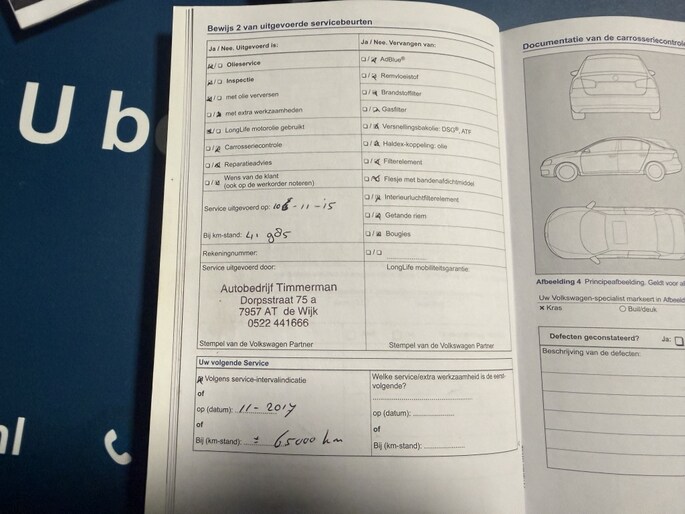 U b
nl
Bewijs 2 van uitgevoerde servicebeurten
Ja / Nee. Uitgevoerd is:
Olieservice
Inspectie
met olie verversen
met extra werkzaamheden
LongLife motorolie gebruikt
Carrosseriecontrole
Reparatieadvies
Wens van de klant
(ook op de werkorder noteren)
Service uitgevoerd op:
-11-15
Bij km-stand: 41.985
Rekeningnummer:
Service uitgevoerd door:
Autobedrijf Timmerman
Dorpsstraat 75 a
7957 AT de Wijk
0522 441666
Stempel van de Volkswagen Partner
Ja / Nee. Vervangen van:
AdBlue®
Remvloeistof
Brandstoffilter
Gasfilter
Versnellingsbakolie: DSG®, ATF
Haldex-koppeling: olie
Filterelement
Flesje met bandenafdichtmiddel
Interieurluchtfilterelement
Getande riem
Bougies
LongLife mobiliteitsgarantie:
Stempel van de Volkswagen Partner
Uw volgende Service
Volgens service-intervalindicatie
of
op (datum): 11-2017
of
Bij (km-stand): ± 65000 km
Welke service/extra werkzaamheid is de eerst-
volgende?
op (datum):
of
Bij (km-stand):
Documentatie van de carrosseriecontrole
Afbeelding 4 Principeafbeelding. Geldt voor al
Uw Volkswagen-specialist markeert in Afbeeld
× Kras
Buil/deuk
Defecten geconstateerd? Ja:
Beschrijving van de defecten: